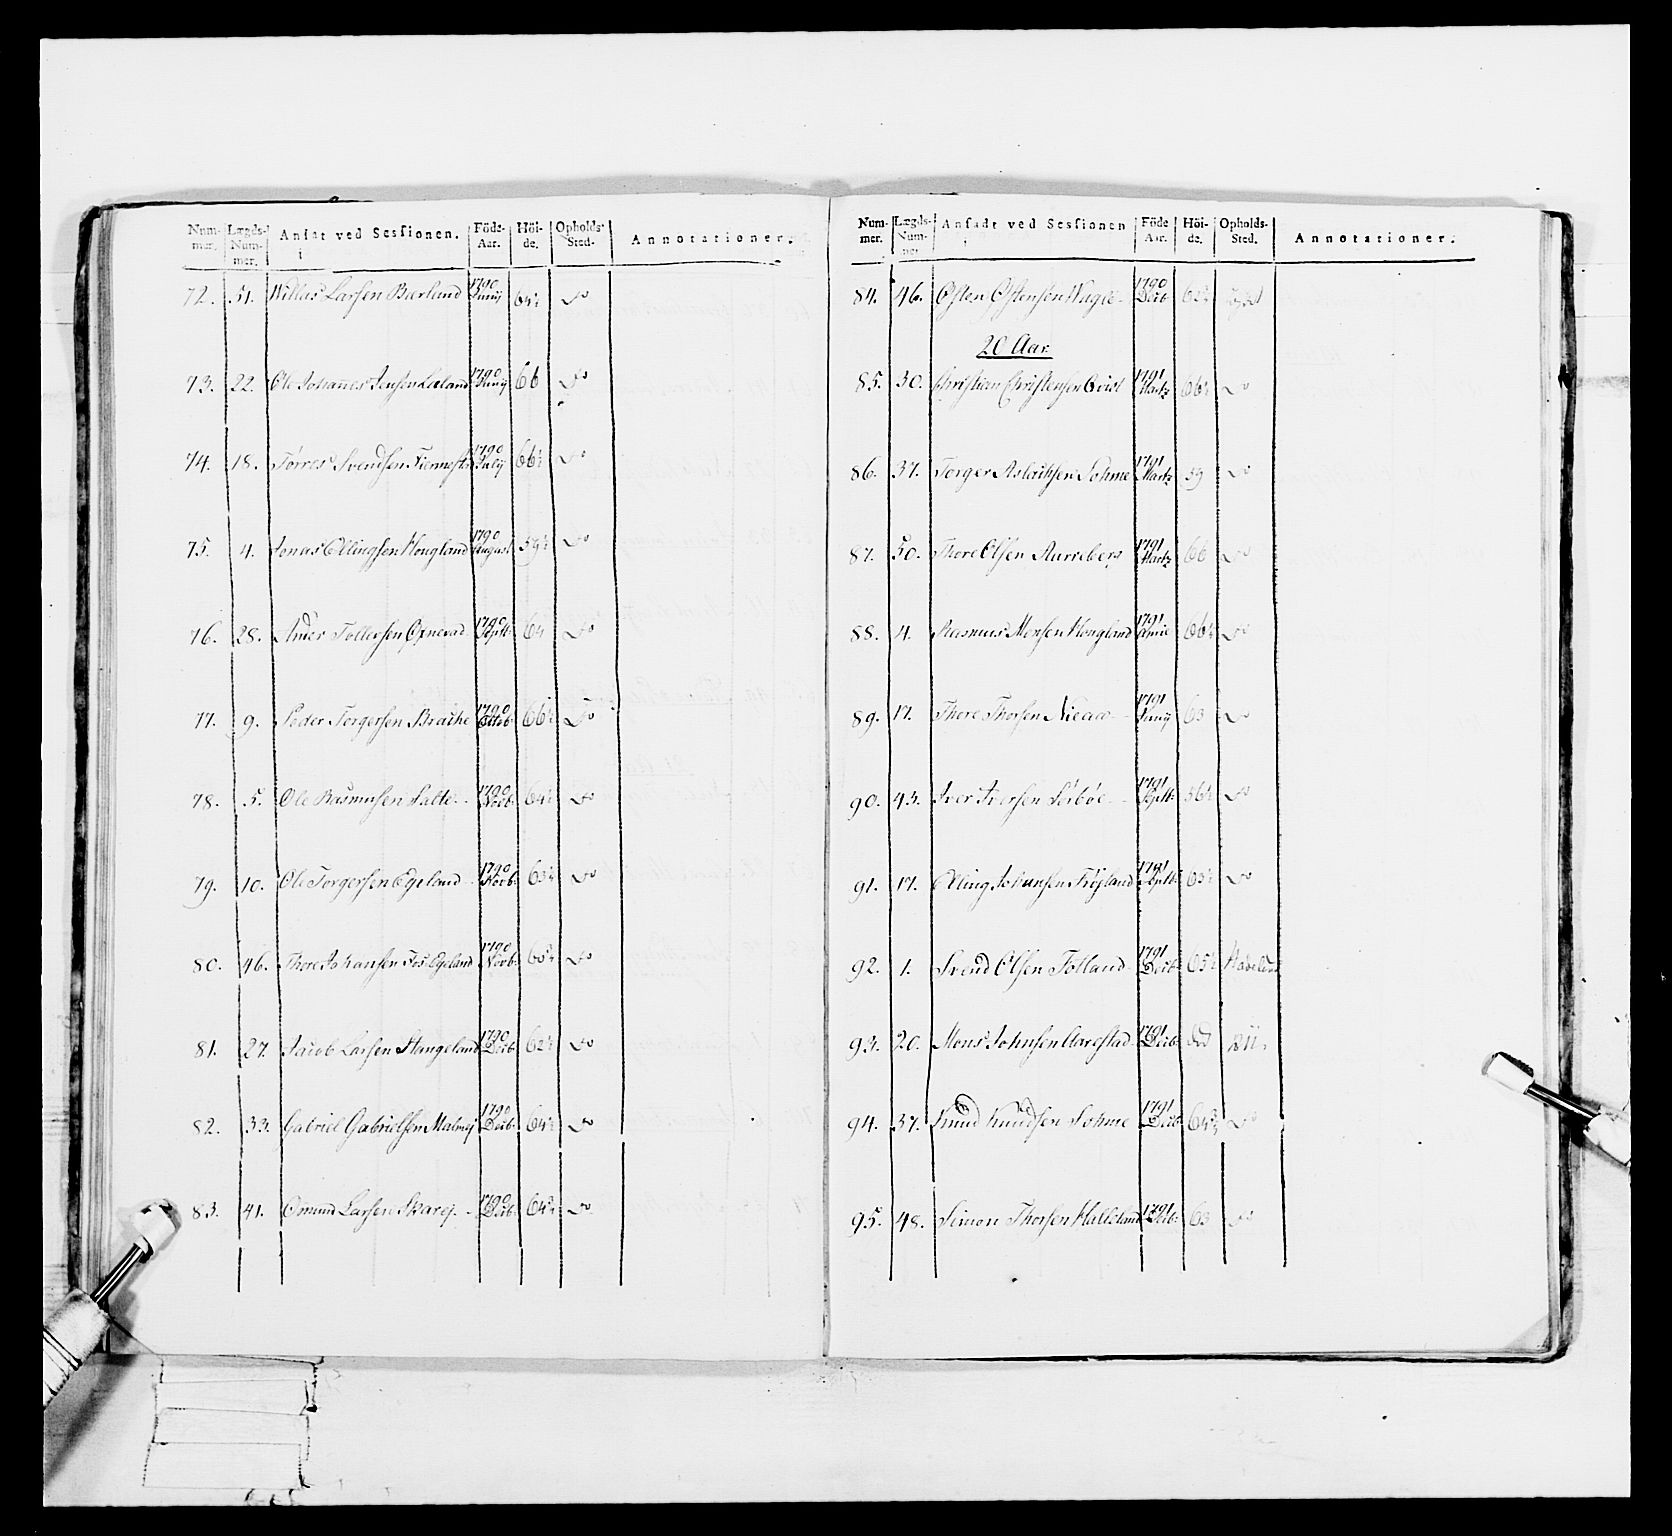 Num-mer. Lægds-Num-mer. Ansat ved Sessionen. Föde-Aar. Höi-de. Opholds-Sted. Annotationer.
72. 51. Niklas Larsen Bærland 1790 Junij 64½ Do
73. 22. Ole Johannes Jensen Leeland 1790 Junij 66 Do
74. 18. Tørres Svendsen 1790 July 66½ Do
75. 4. Jonas Ellingsen Hougland 1790 August 59½ Do
76. 28. Ander Tollevsen 1790 Septb: 64 Do
77. 9. Peder Torgersen Braihe 1790 Octob: 66½ Do
78. 5. Ole Rasmusen Salte 1790 Novb: 64½ Do
79. 10. Ole Torgersen Egeland 1790 Novb: 63½ Do
80. 46. Thore Johansen Fos Egeland 1790 Novb: Do
81. 27. Jacob Larsen Stangeland 1790 Decb: 62½ Do
82. 33. Gabriel Gabrielsen Malmej 1790 Decb: 64½ Do
83. 41. Omund Larsen Skarej 1790 Decb: Do
Num-mer. Lægds-Num-mer. Ansadt ved Sessionen Föde Aar. Höi-de. Opholds-Sted. Annotationer.
84. 46. Østen Østensen Hagle 1790 Decb:
20 Aar.
85. 30. Christian Christensen Qvist 1791 Martz 66½ Do
86. 37. Torger Aslachsen Sohme 1791 Martz 59 Do
87. 50. Thore Olsen 1791 Martz 66 Do
88. 4. Rasmus Monsen Hougland 1791 66½ Do
89. 17. Thore Thorsen 1791 Junij 63 Do
90. 43. Iver Iversen Sørbøe 1791 Septb: 56½ Do
91. 17. Elling Johansen Frøjland 1791 Septb: 63½ Do
92. 1. Svend Olsen Totland 1791 Decb: 65½
93. 20. Mons Johnsen Aarestad 1791 Decb:
94. 37. Knud Knudsen Sohme 1791 Decb: Do
95. 48. Simon Thorsen Halleland 1791 Decb: 63 Do